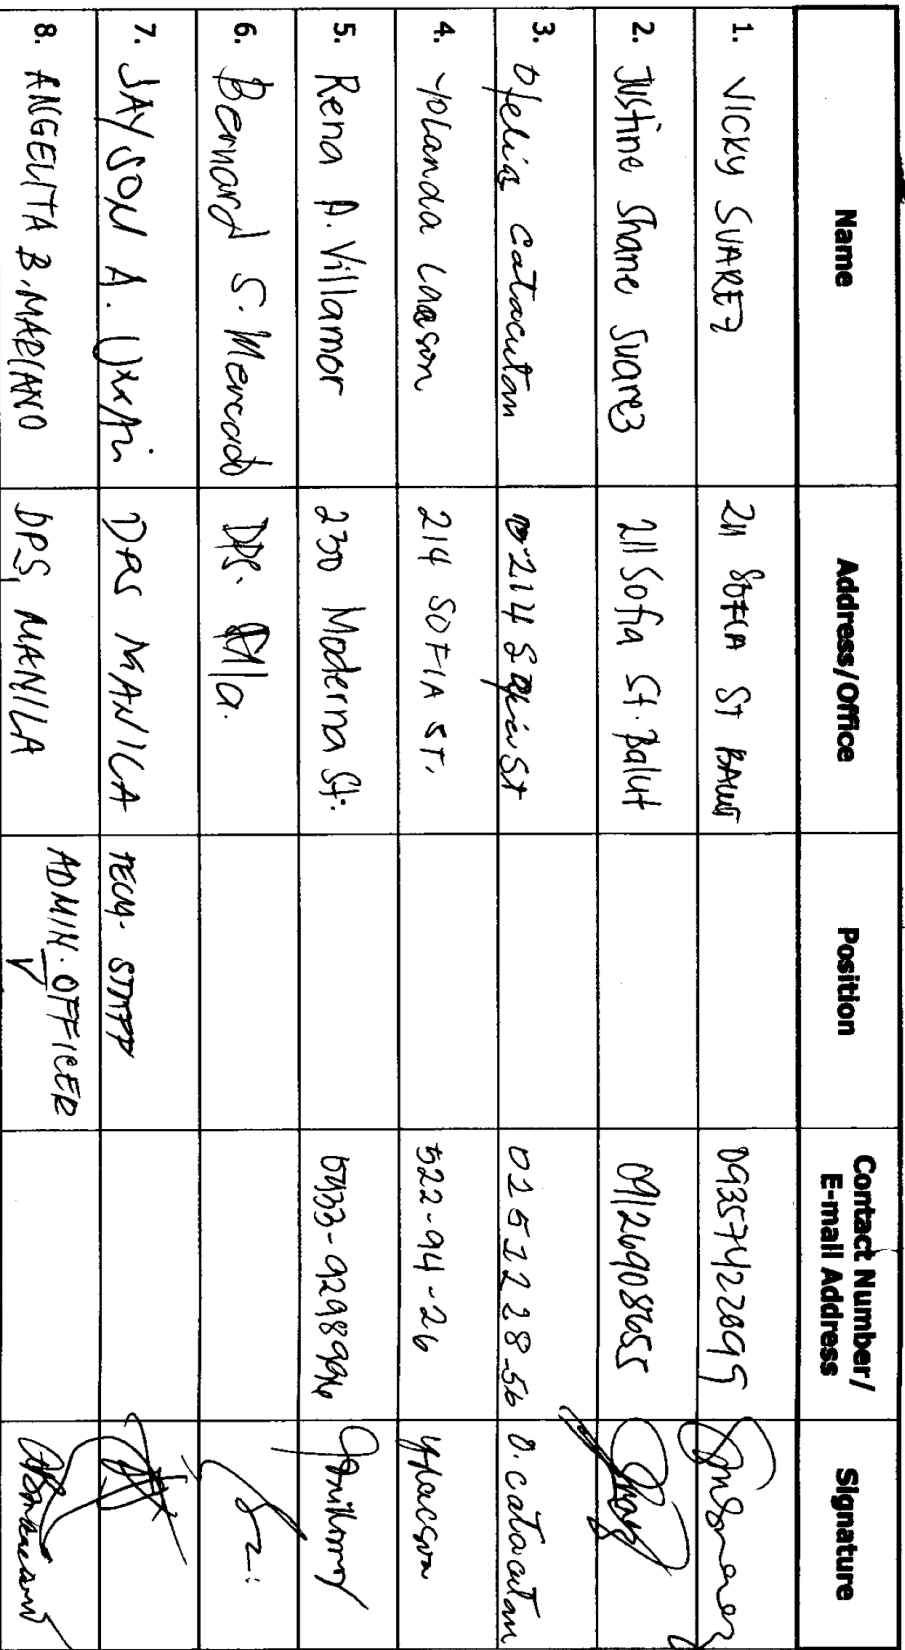 Name Address/Office Position Contact Number/ E-mail Address Signature
1. VICKY SUAREZ 211 SOFIA ST BALUT 09357422099
2. Justine Shane Suarez 211 Sofia St. Balut 09126908655
3. Ofelia Catacutan 214 Sofia St 0251228-56 O. catacutan
4. Yolanda Lacson 214 SOFIA ST. 522-94-26 YLacson
5. Rena A. Villamor 230 Moderna St. 0933-9298996
6. Bernard S. Mercado DPS. Mla.
7. JAYSON A. DPS MANILA TECH. STAFF
8. ANGELITA B. MARIANO DPS, MANILA ADMIN. OFFICER V